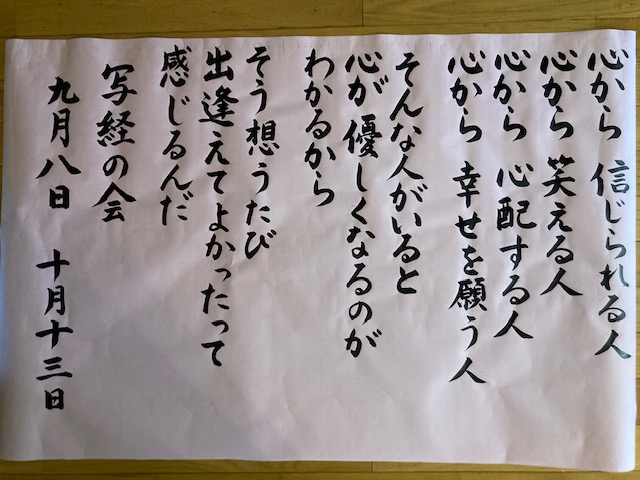 心から 信じられる人
心から 笑える人
心から 心配する人
心から 幸せを願う人
そんな人がいると
心が優しくなるのが
わかるから
そう想うたび
出逢えてよかったって
感じるんだ
写経の会
九月八日 十月十三日